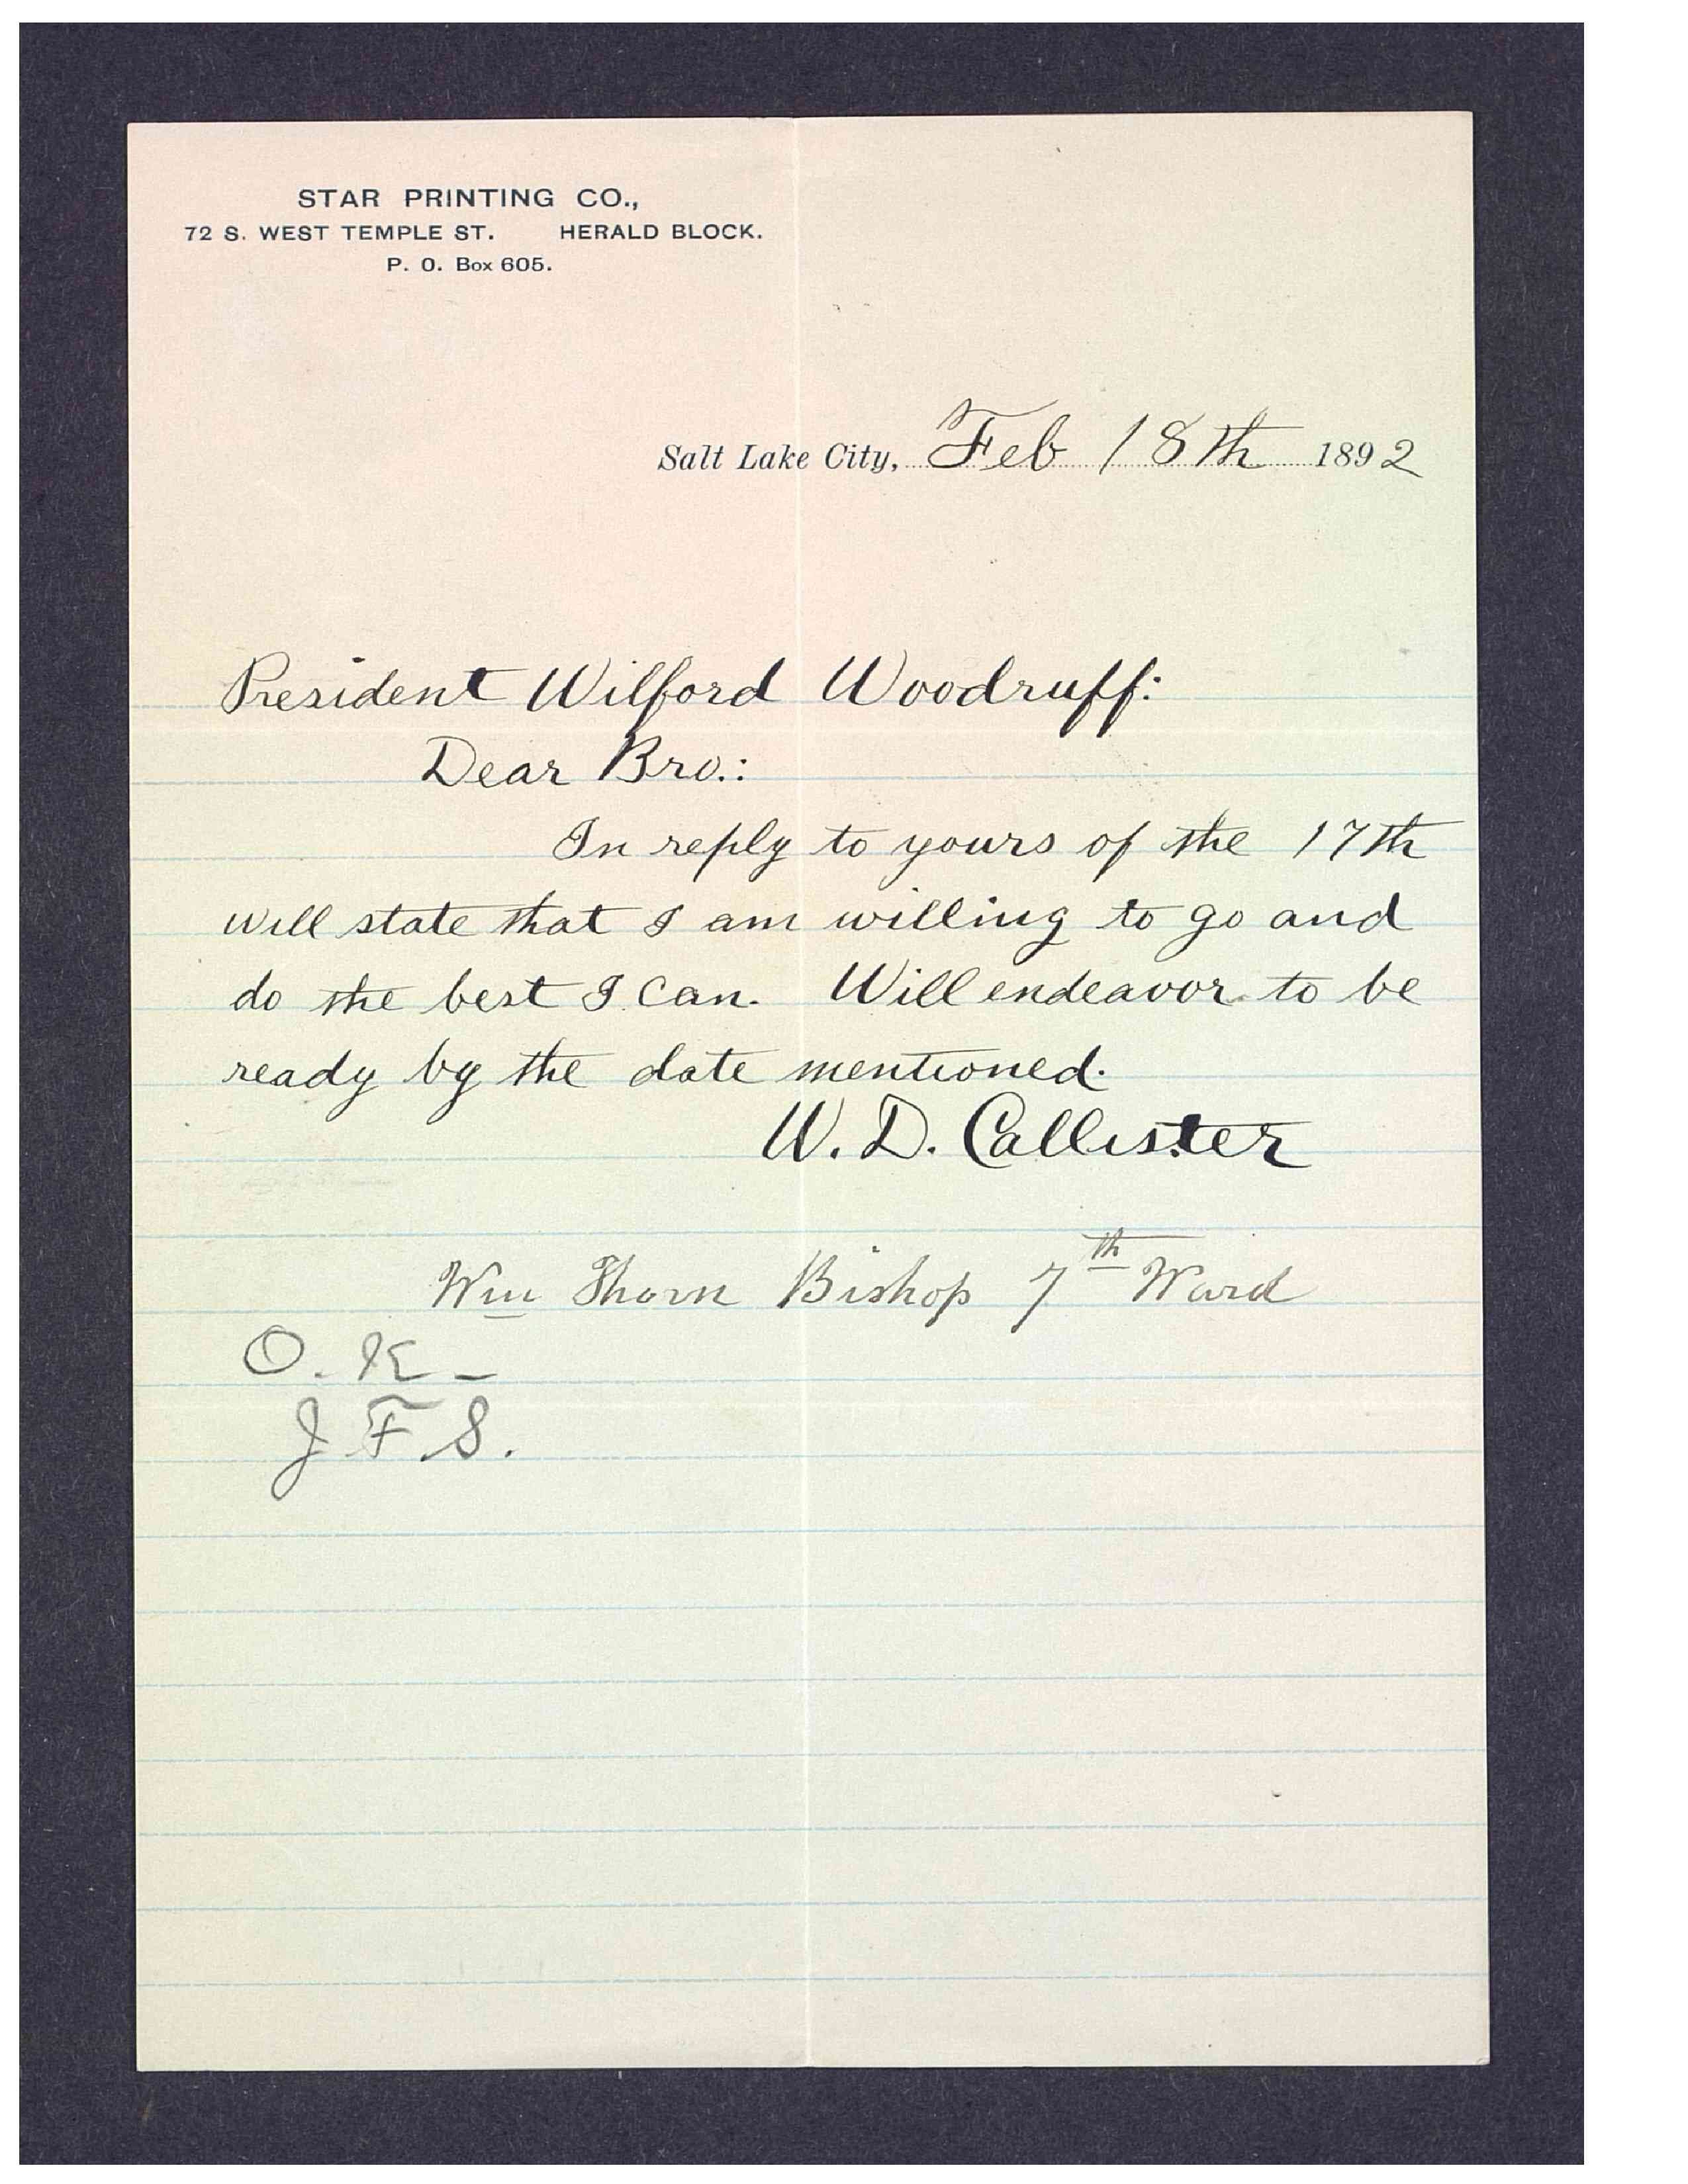 STAR PRINTING CO.,
72 S. WEST TEMPLE ST. HERALD BLOCK.
P. O. Box 605.
Salt Lake City, Feb 18th 1892
President Wilford Woodruff:
Dear Bro.:
In reply to yours of the 17th
will state that I am willing to go and
do the best I can. Will endeavor to be
ready by the date mentioned.
W. D. Callister
Wm Thorn Bishop 7th Ward
O. K –
J F S.